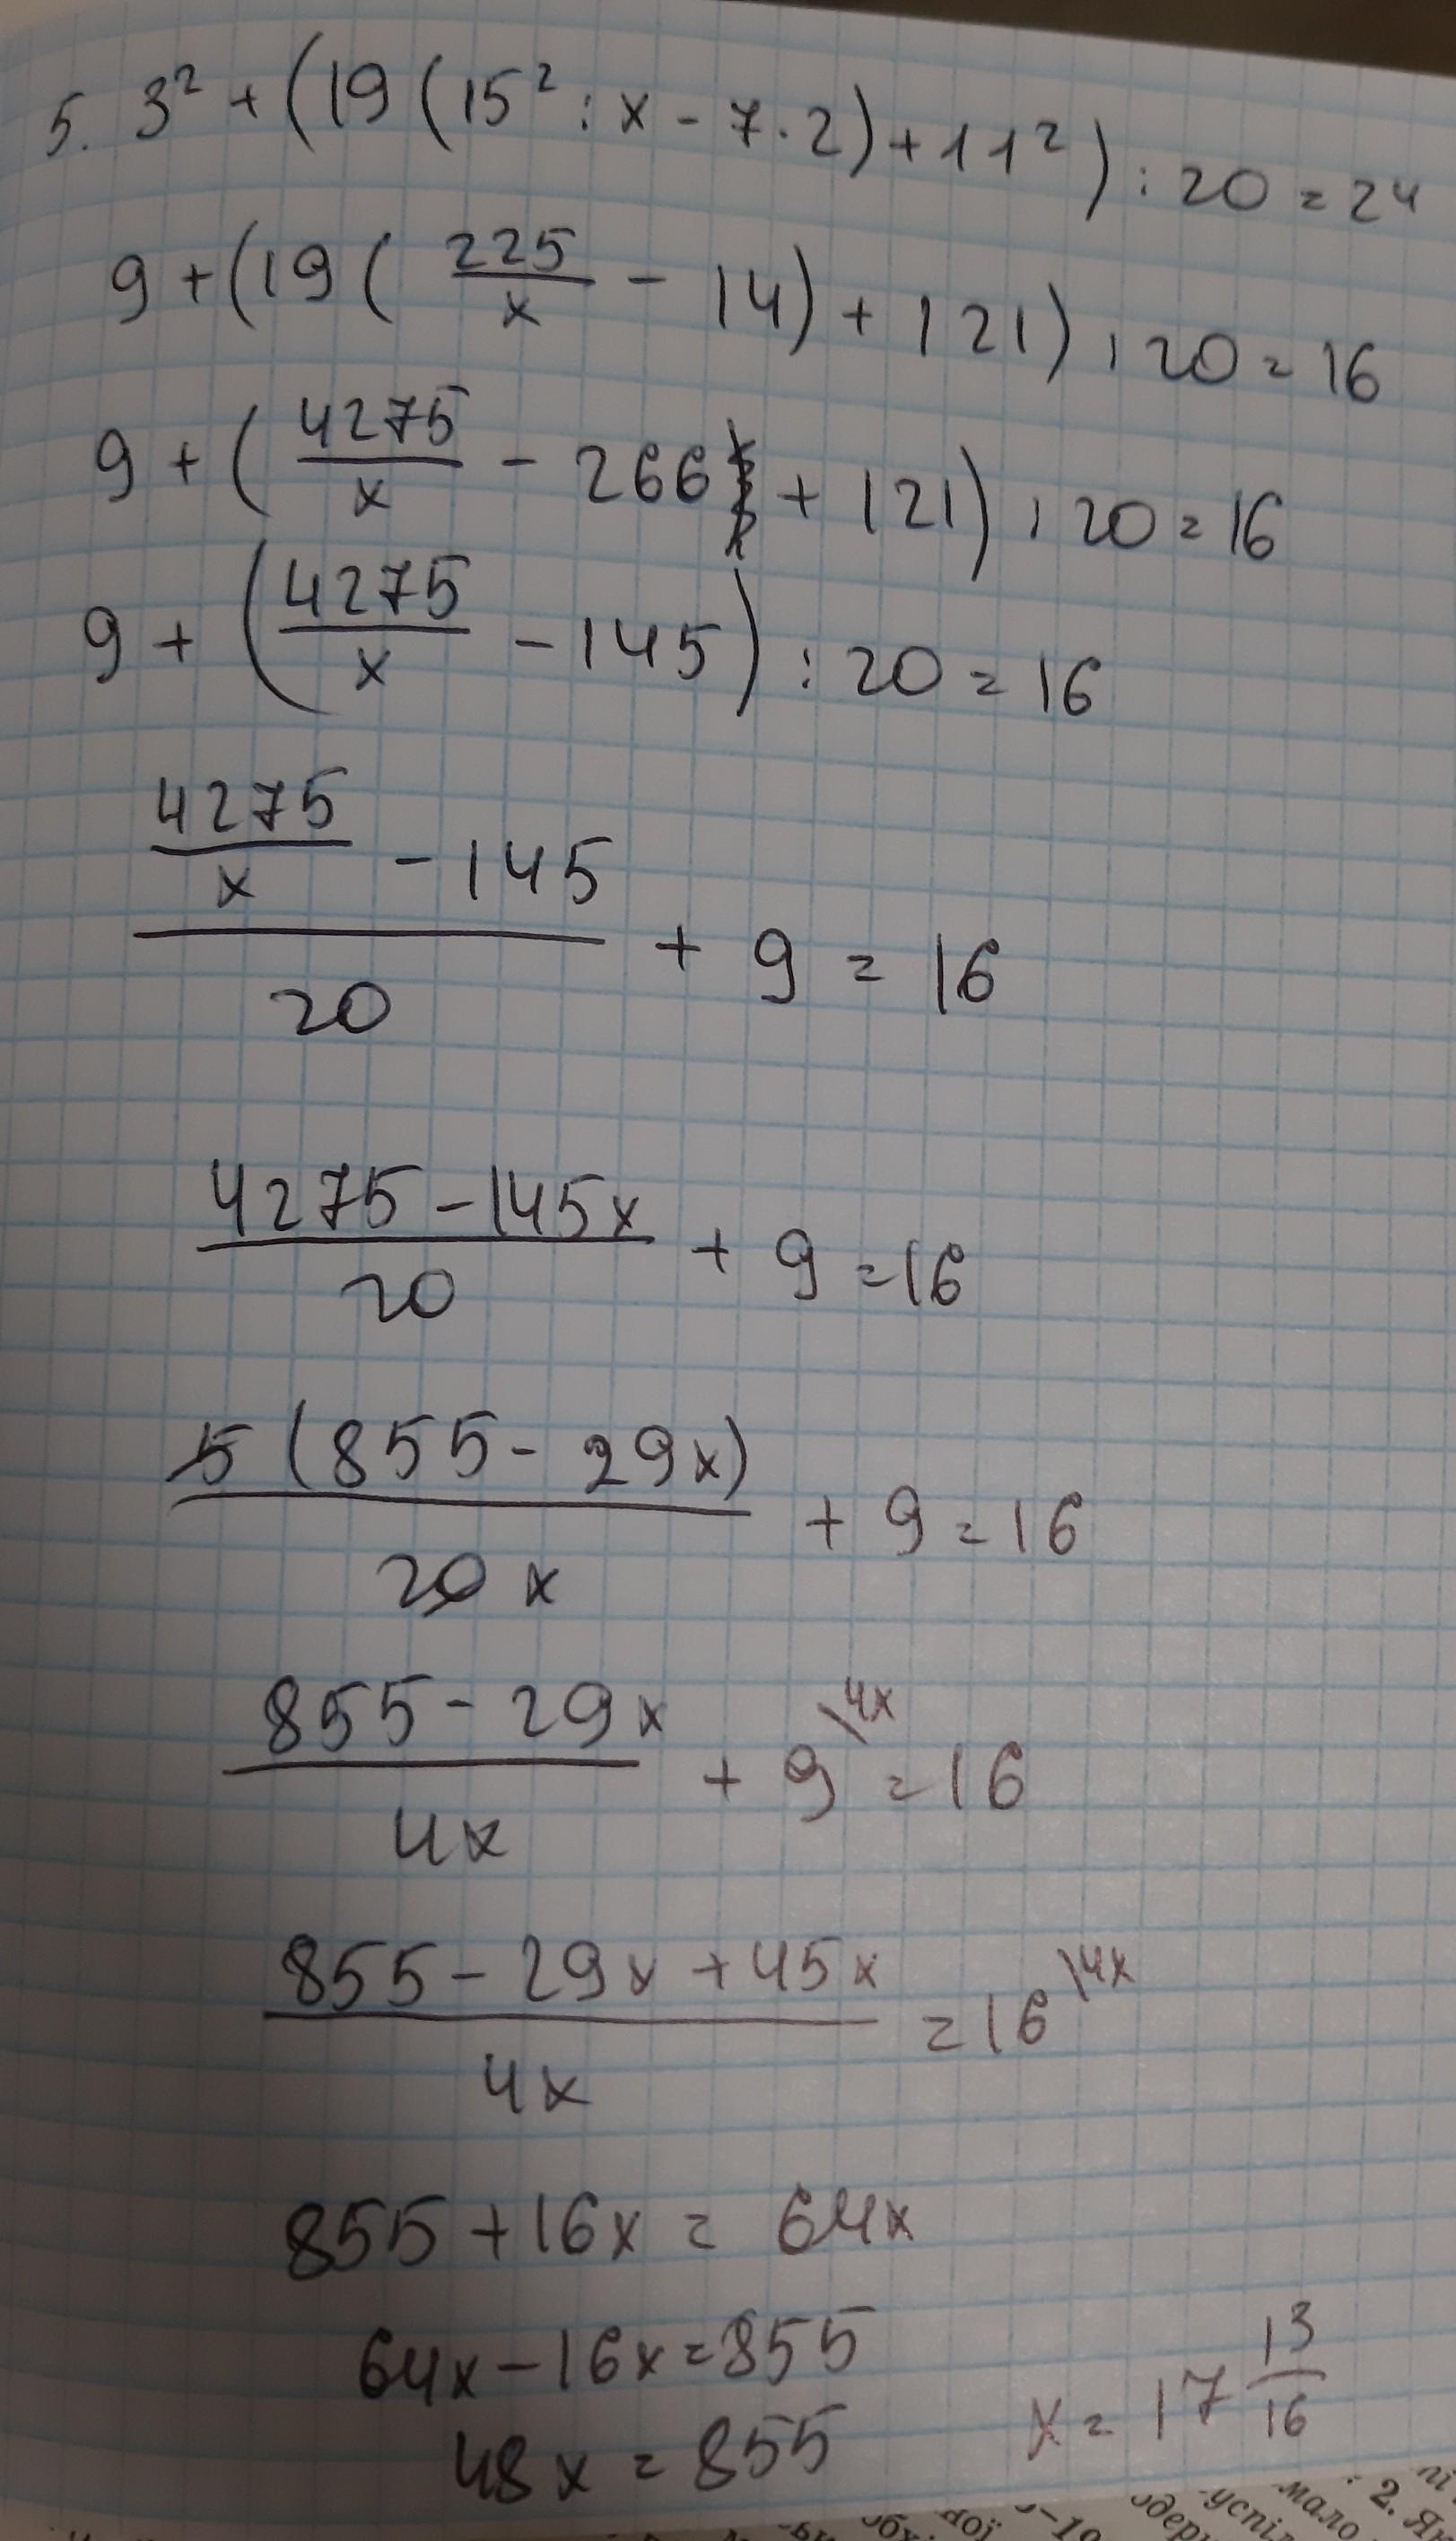 5. 3² + (19 (15² : x - 7 · 2) + 11²) : 20 = 24
9 + (19 ( 225/x - 14) + 121) : 20 = 16
9 + ( 4275/x - 266 + 121) : 20 = 16
9 + ( 4275/x - 145 ) : 20 = 16
(4275/x - 145)/20 + 9 = 16
(4275 - 145x)/20 + 9 = 16
5 (855 - 29x)/20 x + 9 = 16
(855 - 29x)/4x + 9 \4x = 16
(855 - 29x + 45x)/4x = 16 \4x
855 + 16x = 64x
64x - 16x = 855
48x = 855
x = 17 13/16
мало
2. Як